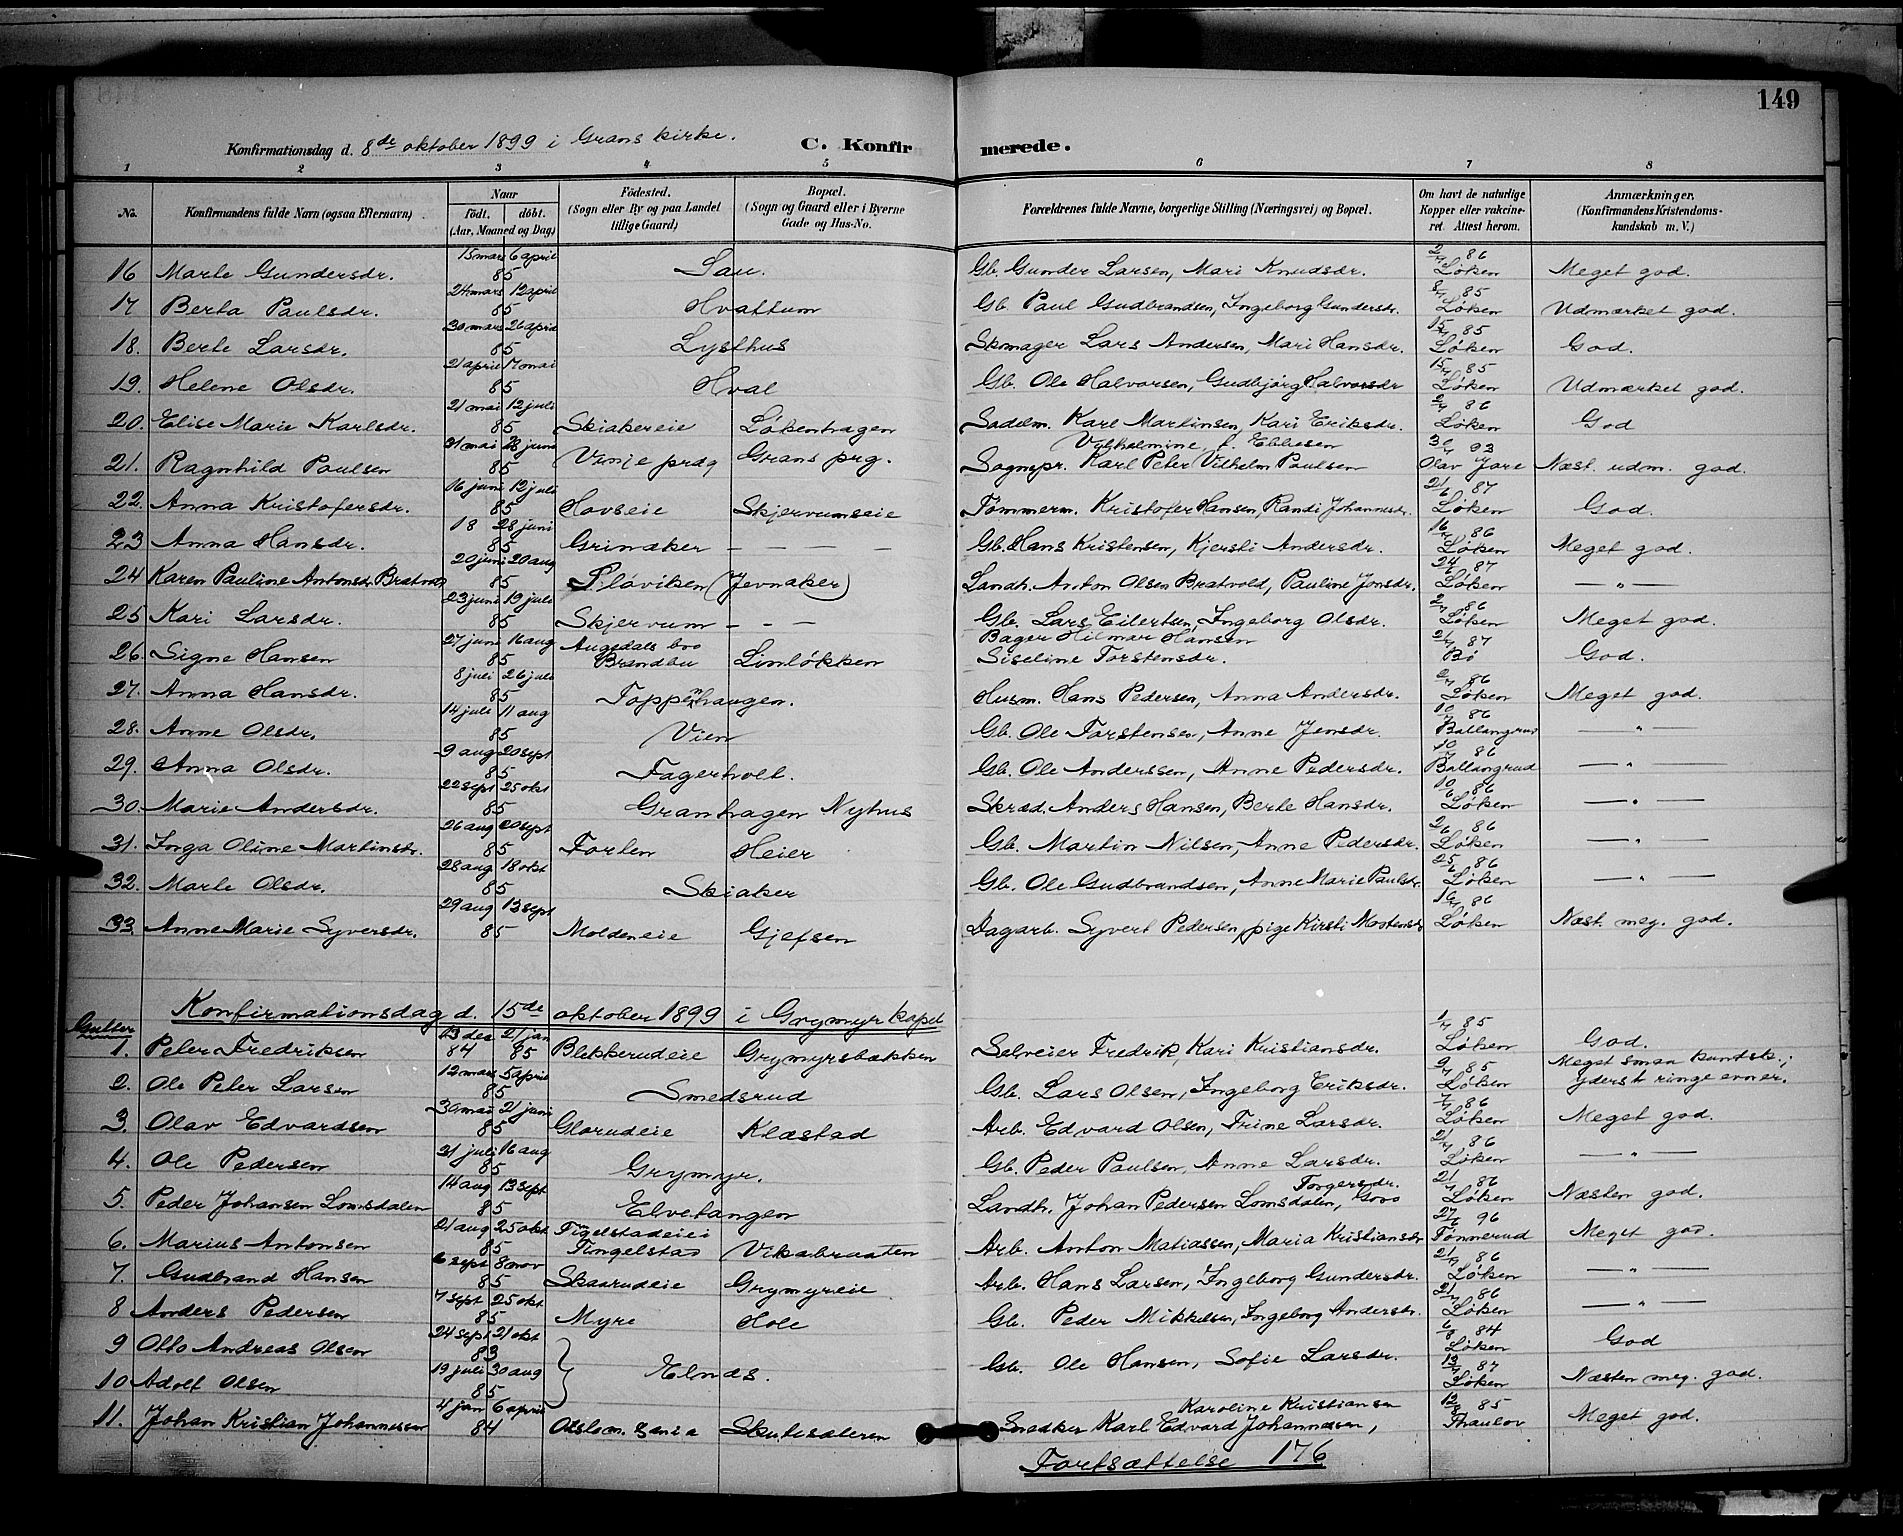 149
Konfirmationsdag d. 8de oktober 1899 i Grans kirke.
C. Konfirmerede.
1 2 3 4 5 6 7 8
No. Konfirmandens fulde Navn (ogsaa Efternavn) Naar født. døbt. (Aar, Maaned og Dag) Fødested. (Sogn eller By og paa Landet tillige Gaard) Bopæl. (Sogn og Gaard eller i Byerne Gade og Hus-No. Forældrenes fulde Navne, borgerlige Stilling (Næringsvei) og Bopæl. Om havt de naturlige Kopper eller vakcineret. Attest herom. Anmærkninger, (Konfirmandens Kristendomskundskab m. V.)
16 Marte Gundersdr. 15 mars 6 april 85 Sau. Gb. Gunder Larsen, Mari Knudsdr. 2/7 86 Løken Meget god.
17 Berta Paulsdr. 24 mars 12 april 85 Hvattum Gb. Paul Gudbrandsen, Ingeborg Gundersdr. 8/7 85 Løken Udmærket god.
18. Berte Larsdr. 30 mars 26 april 85 Lysthus Skomager Lars Andersen, Mari Hansdr. 15/7 85 Løken God.
19. Helene Olsdr. 21 april 17 mai 85 Hval Gb. Ole Halvorsen, Gudbjørg Halvorsdr 15/7 85 Løken Udmærket god.
20. Elise Marie Karlsdr. 21 mai 12 juli 85 Skiakereie Løkenhagen Sadelm. Karl Martinsen, Kari Eriksdr. 2/7 86 Løken God
21. Ragnhild Paulsen 31 mai 28 juni 85 Vinje præg Grans prg. Sognepr. Karl Peter Vilhelm Paulsen Vilhelmine f. Ebbesen 93 Olav Jare Næst. udm. god.
22. Anna Kristofersdr. 16 juni 12 juli 85 Hovseie Skjervumseie Tømmerm. Kristofer Hansen, Randi Johannesdr. 21/6 87 Løken God.
23 Anna Hansdr. 18 28 juni 85 Grinaker — — — — Gb. Hans Kristensen, Kjersti Andersdr. 16/7 86 Løken Meget god.
24 Karen Pauline Antonsdr. Bratvold 20 juni 20 aug 85 Sløviken (Jevnaker) Landh. Anton Olsen Bratvold, Pauline Jonsdr. 24/6 87 Løken — " —
25 Kari Larsdr. 23 juni 19 juli 85 Skjervum — — — Gb. Lars Eilertsen, Ingeborg Olsdr. 2/7 86 Løken Meget god.
26. Signe Hansen 27 juni 16 aug 85 Augedals bro Brandbu Linløkken Bager Hilmar Hansen Siseline Torstensdr. 21/7 87 Bø God.
27. Anna Hansdr. 8 juli 26 juli 85 Toppenhaugen. Husm. Hans Pedersen, Anna Andersdr. 2/7 86 Løken Meget god.
28. Anne Olsdr. 14 juli 11 aug 85 Vien Gb. Ole Torstensen, Anne Jensdr. 10/7 86 Ballangrud — " —
29. Anna Olsdr. 9 aug 20 sept 85 Fagertvelt. Gb. Ole Anderssen, Anne Pedersdr. 10/7 86 Ballangrud — " —
30. Marie Andersdr. 22 sept 25 okt 85 Granhagen Nyhus Skræd. Anders Hansen, Berte Hansdr. 10/6 86 Løken — " —
31. Inga Oline Martinsdr. 26 aug 20 sept 85 Forten Heier Gb. Martin Nilsen, Anne Pedersdr. 2/6 86 Løken — " —
32. Marte Olsdr. 28 aug 18 okt 85 Skiaker Gb. Ole Gudbrandsen, Anne Marie Paulsdr. 25/6 86 Løken — " —
33. Anne Marie Syversdr. 29 aug 13 sept 85 Moldeneie Gjefsen Dagarb. Syvert Pedersen, pige Kirsti Mortensdr 16/7 86 Løken Næst. meg. god.
Konfirmationsdag d. 15de oktober 1899 i Grymyr kapel
Gutter
1. Peter Fredriksen 13 des 84 21 jan 85 Blekkerudeie Grymyrsbækken Selveier Fredrik, Kari Kristiansdr. 1/7 85 Løken God.
2. Ole Peter Larsen 12 mars 5 april 85 Smedsrud Gb. Lars Olsen, Ingeborg Eriksdr. 9/7 85 Løken Meget smaa kundsk.; yderst ringe evner.
3. Olav Edvardsen 30 mai 21 juni 85 Glorudeie Klæstad Arb. Edvard Olsen, Trine Larsdr. 7/7 86 Løken Meget god.
4. Ole Pedersen 21 juli 16 aug 85 Grymyr. Gb. Peder Paulsen, Anne Larsdr. 21/7 86 Løken — " —
5. Peder Johansen Lomsdalen 14 aug 13 sept 85 Elvetangen Landh. Johan Pedersen Lomsdalen, Goro Torgersdr. 21/7 86 Løken Næsten god.
6. Marius Antonsen 21 aug 25 okt 85 Tingelstadeiei Tingelstad Vikabraaten Arb. Anton Matiassen, Maria Kristiansdr 27/6 96 Tønnerud Meget god.
7. Gudbrand Hansen 6 sept 8 nov 85 Skaarudeie Grymyreie Arb. Hans Larsen, Ingeborg Gundersdr. 21/7 86 Løken — " —
8 Anders Pedersen 7 sept 25 okt 85 Myre Hole Gb. Peder Mikkelsen, Ingeborg Andersdr. 21/7 86 Løken — " —
9 Otto Andreas Olsen 24 sept 21 okt 83 Elnæs. Gb. Ole Hansen, Sofie Larsdr. 6/8 84 Løken God
10 Adolf Olsen 19 juli 30 aug 85 13/7 87 Løken Næsten meg. god.
11. Johan Kristian Johannessen 4 jan 6 april 84 Skutesæteren Snedker Karl Edvard Johannesen, Karoline Kristiansen 12/8 85 Thaulov Meget god.
Fortsættelse 176